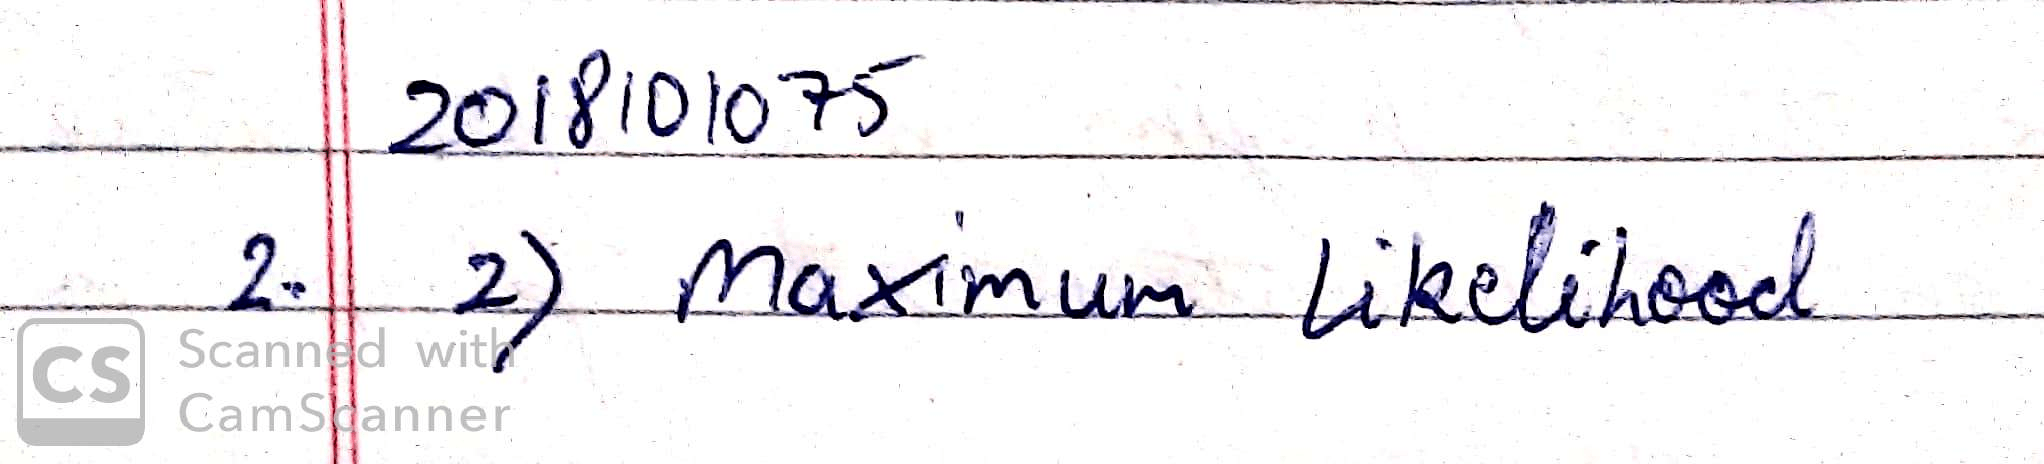 2018101075
2. 2) Maximum Likelihood
CS Scanned with
CamScanner